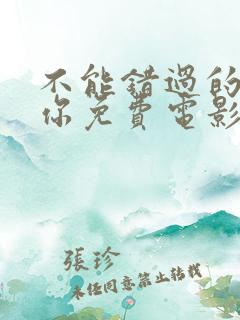 不能錯過的
你免費電影
張珍
未经同意禁止转载